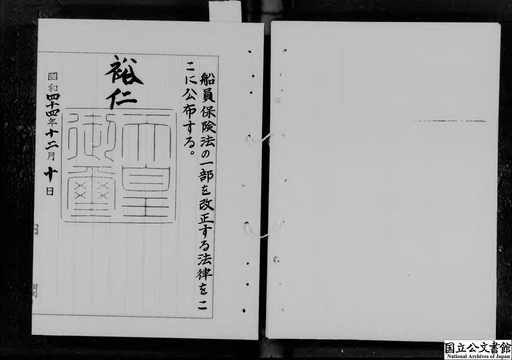 船員保険法の一部を改正する法律をこ
こに公布する。
裕仁
天皇
御璽
昭和四十四年十二月十日
国立公文書館
National Archives of Japan